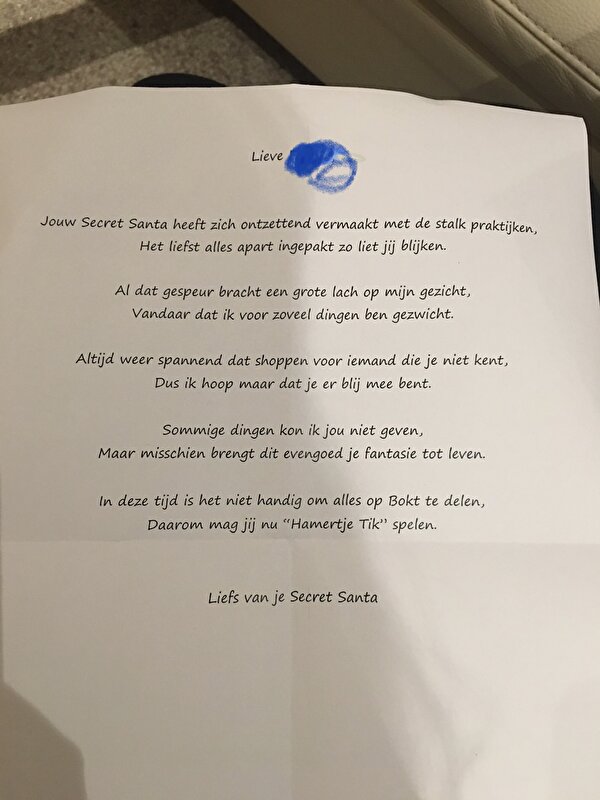 Lieve
Jouw Secret Santa heeft zich ontzettend vermaakt met de stalk praktijken,
Het liefst alles apart ingepakt zo liet jij blijken.
Al dat gespeur bracht een grote lach op mijn gezicht,
Vandaar dat ik voor zoveel dingen ben gezwicht.
Altijd weer spannend dat shoppen voor iemand die je niet kent,
Dus ik hoop maar dat je er blij mee bent.
Sommige dingen kon ik jou niet geven,
Maar misschien brengt dit evengoed je fantasie tot leven.
In deze tijd is het niet handig om alles op Bokt te delen,
Daarom mag jij nu “Hamertje Tik” spelen.
Liefs van je Secret Santa